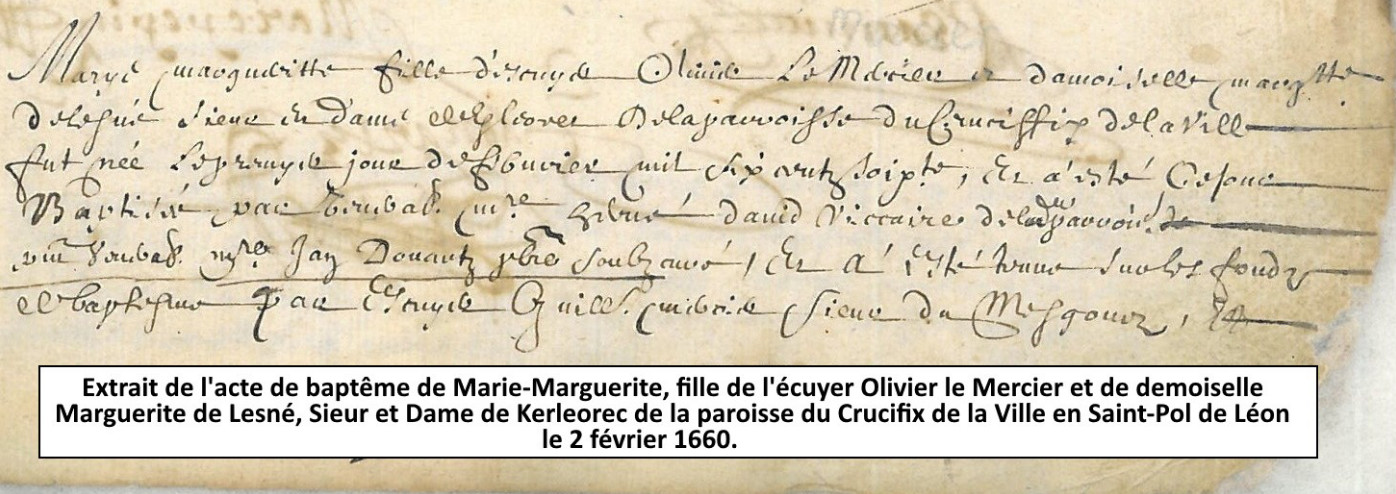 Marye margueritte fille d'escuyer Olivier Le Mercier et damoiselle margtte
de lesné sieur et dame de De la parroisse du Cruciffix de la Ville
fut née Le premyer jour de febvrier mil six centz soixte, Et a esté Ce jour
Baptisée par mre hervé david viccaire de lad parroisse
mre Jan ptre soubz curé, Et a esté tenue sur les fondz
de baptesme Par Escuyer Guill. mercier sieur du Mesgouez, Et
Extrait de l'acte de baptême de Marie-Marguerite, fille de l'écuyer Olivier le Mercier et de demoiselle
Marguerite de Lesné, Sieur et Dame de Kerleorec de la paroisse du Crucifix de la Ville en Saint-Pol de Léon
le 2 février 1660.